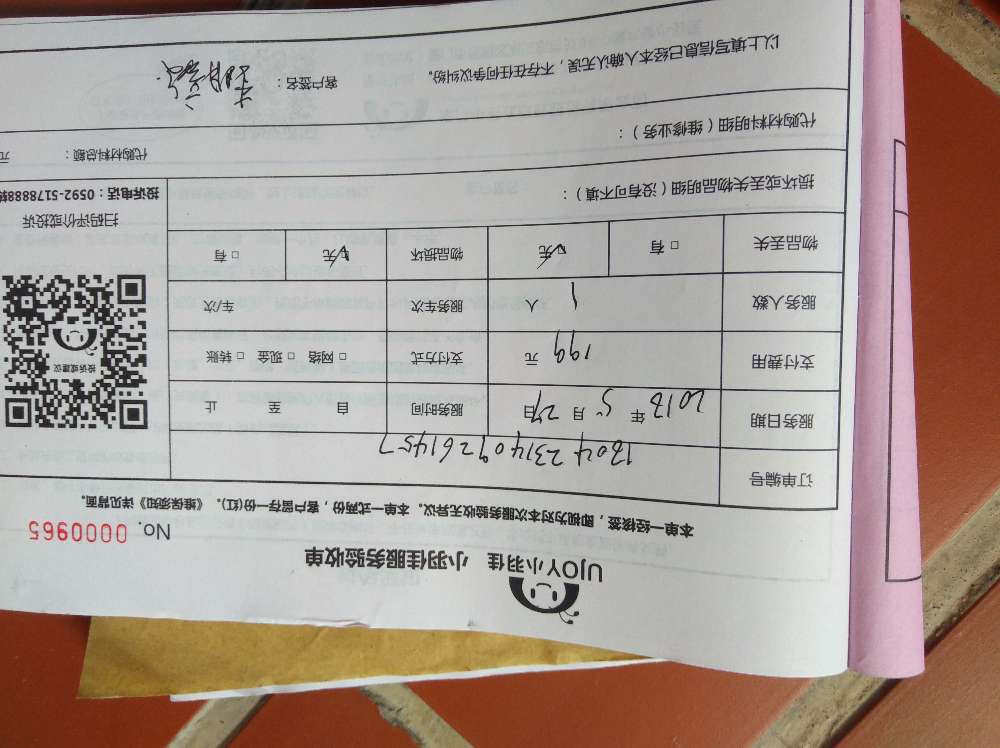 UJOY小羽佳 小羽佳服务验收单
No. 0000965
本单一经核签，即视为对本次服务验收无异议。本单一式两份，客户留存一份(红)。《维保须知》详见背面。
订单编号 1304231409261457
服务日期 2018年5月29日 服务时间 自 至 止
支付费用 199 元 支付方式 □ 网络 □ 现金 □ 转账
服务人数 1 人 服务车次 车/次
物品丢失 □ 有 ☑ 无 物品损坏 ☑ 无 □ 有
投诉或建议
扫码评价或投诉
投诉电话：0592-5178888转
损坏或丢失物品明细（没有可不填）：
代购材料明细（维修业务）：
代购材料总额： 元
以上填写信息已经本人确认无误，不存在任何争议纠纷。 客户签名：